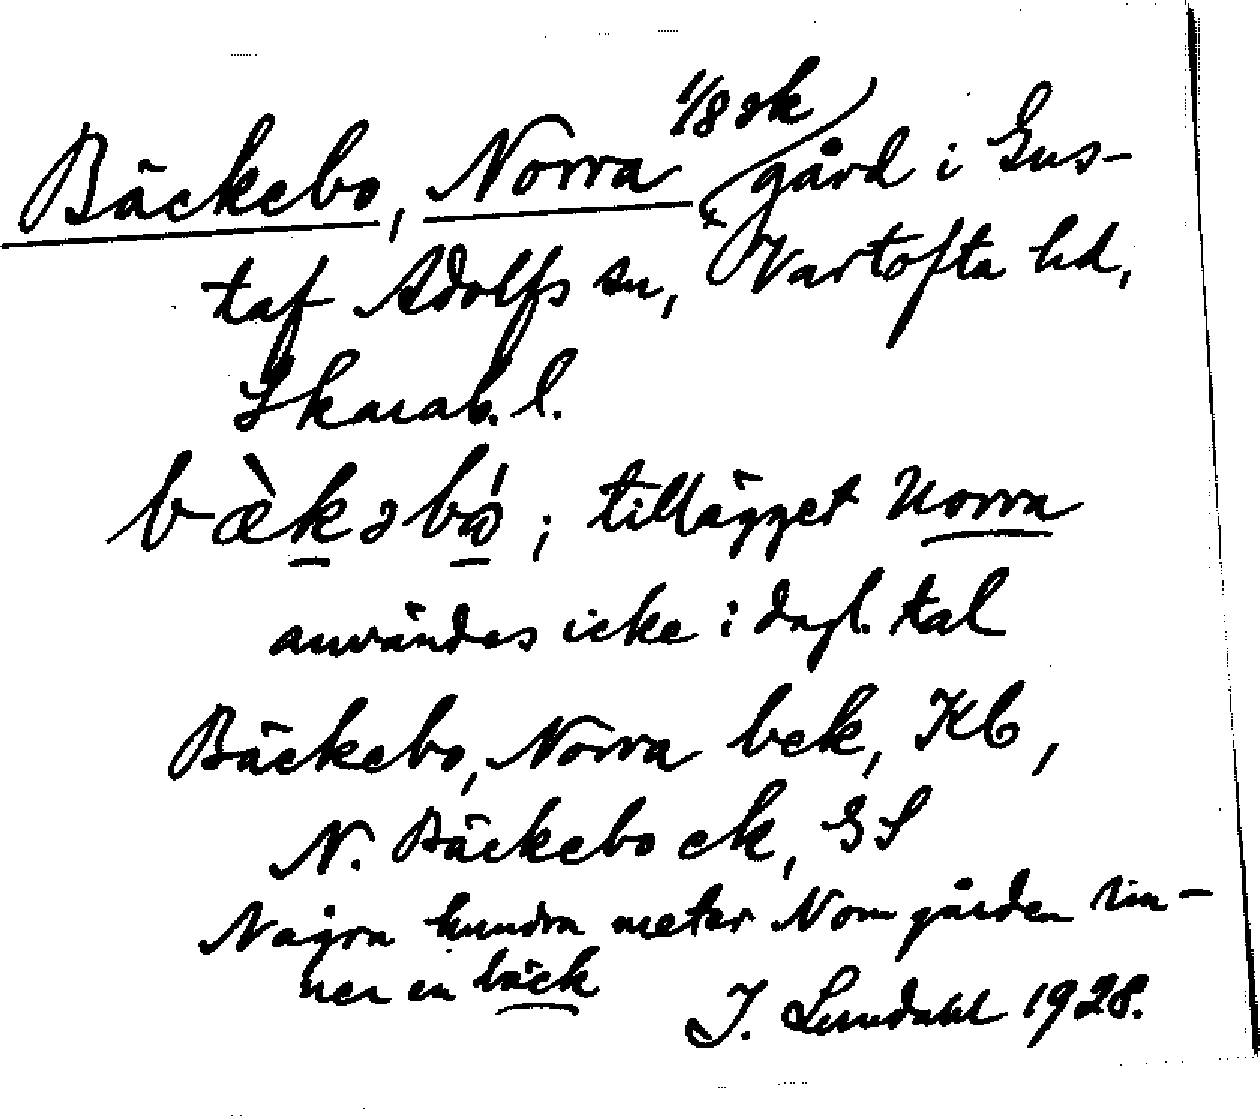 Bäckebo, Norra 1/8 sk gård i Gus-
taf Adolfs sn, Vartofta hd,
Skarab. l.
bæ̀kəbó; tillägget Norra
användes icke i dagl. tal
Bäckebo, Norra bek, Kb,
N. Bäckebo ek, GS
Några hundra meter N om gården rin-
ner en bäck
J. Lundahl 1928.